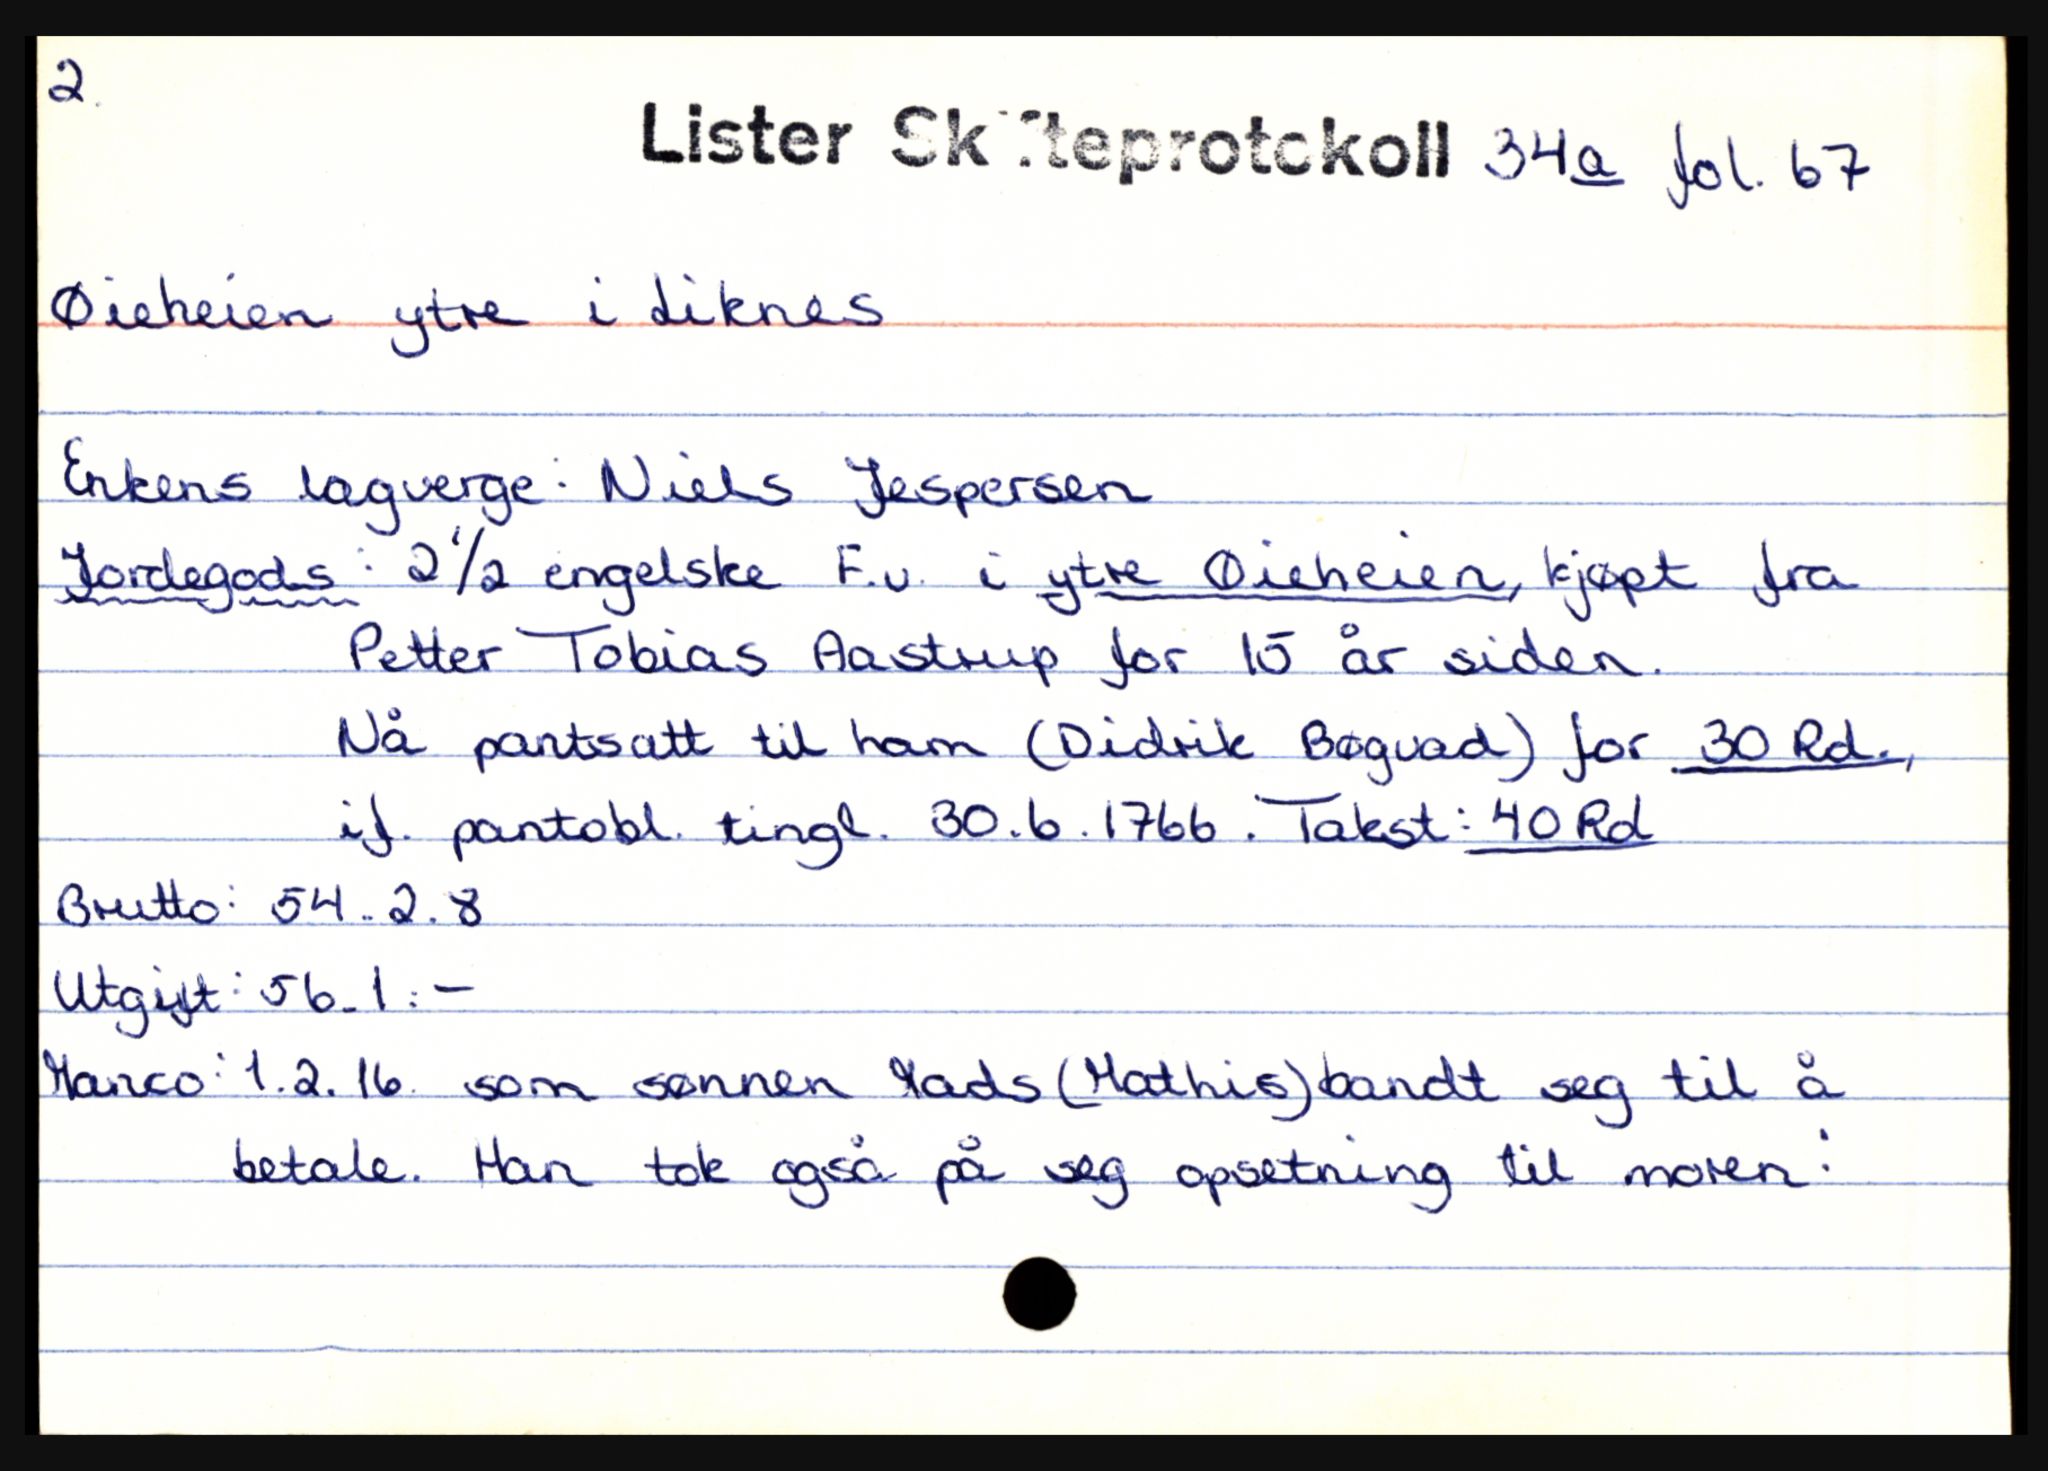 2.
Lister Skifteprotokoll 34a fol. 67
Øieheien ytre i Liknes
Enkens lagverge: Niels Jespersen
Jordegods: 2 1/2 engelske F.v. i ytre Øieheien, kjøpt fra
Petter Tobias Aastrup for 15 år siden.
Nå pantsatt til ham (Didrik Bøgvad) for 30 Rd.,
if. pantobl. tingl. 30.6.1766. Takst: 40 Rd
Brutto: 54.2.8
Utgift: 56.1:-
Manco: 1.2.16 som sønnen Mads (Mathis) bandt seg til å
betale. Han tok også på seg opsetning til moren: